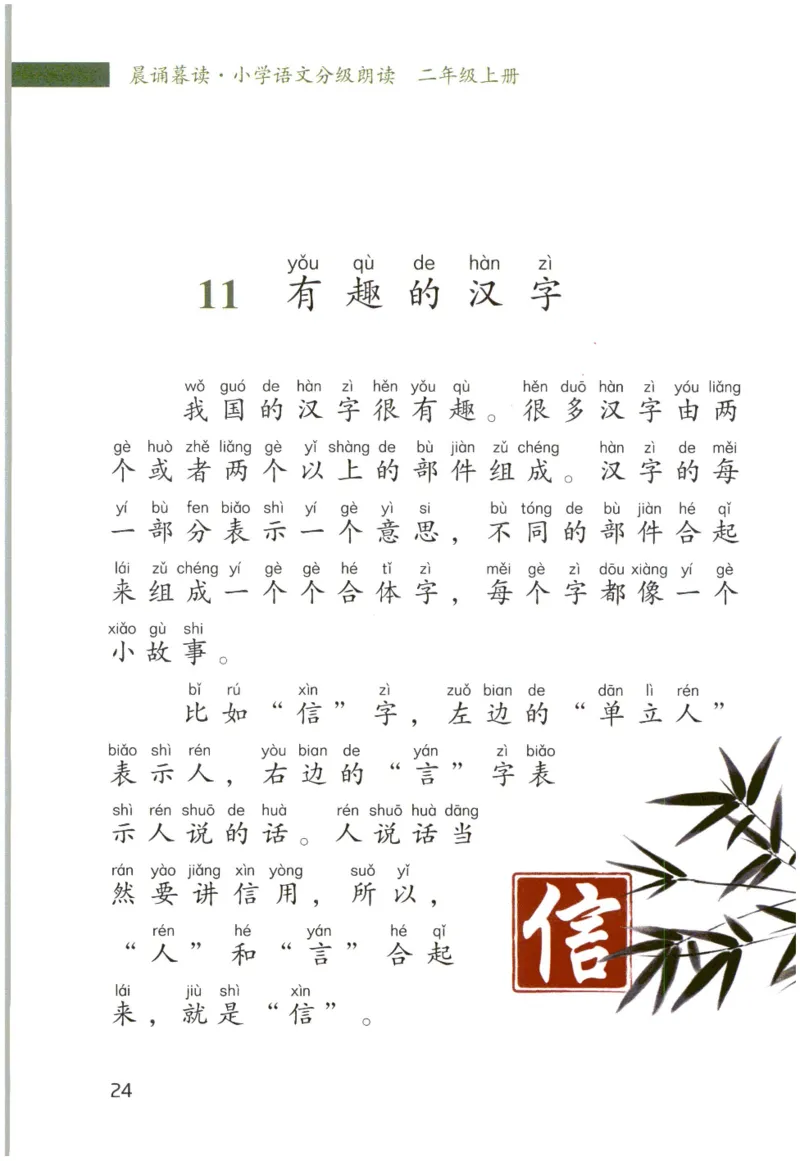 晨诵暮读·小学语文分级朗读 二年级上册
yǒu qù de hàn zì
11 有趣的汉字
wǒ guó de hàn zì hěn yǒu qù hěn duō hàn zì yóu liǎng
我国的汉字很有趣。很多汉字由两
gè huò zhě liǎng gè yǐ shàng de bù jiàn zǔ chéng hàn zì de měi
个或者两个以上的部件组成。汉字的每
yí bù fen biǎo shì yí gè yì si bù tóng de bù jiàn hé qǐ
一部分表示一个意思，不同的部件合起
lái zǔ chéng yí gè gè hé tǐ zì měi gè zì dōu xiàng yí gè
来组成一个个合体字，每个字都像一个
xiǎo gù shi
小故事。
bǐ rú xìn zì zuǒ bian de dān lì rén
比如“信”字，左边的“单立人”
biǎo shì rén yòu bian de yán zì biǎo
表示人，右边的“言”字表
shì rén shuō de huà rén shuō huà dāng
示人说的话。人说话当
rán yào jiǎng xìn yòng suǒ yǐ
然要讲信用，所以，
rén hé yán hé qǐ
“人”和“言”合起
lái jiù shì xìn
来，就是“信”。
信
24